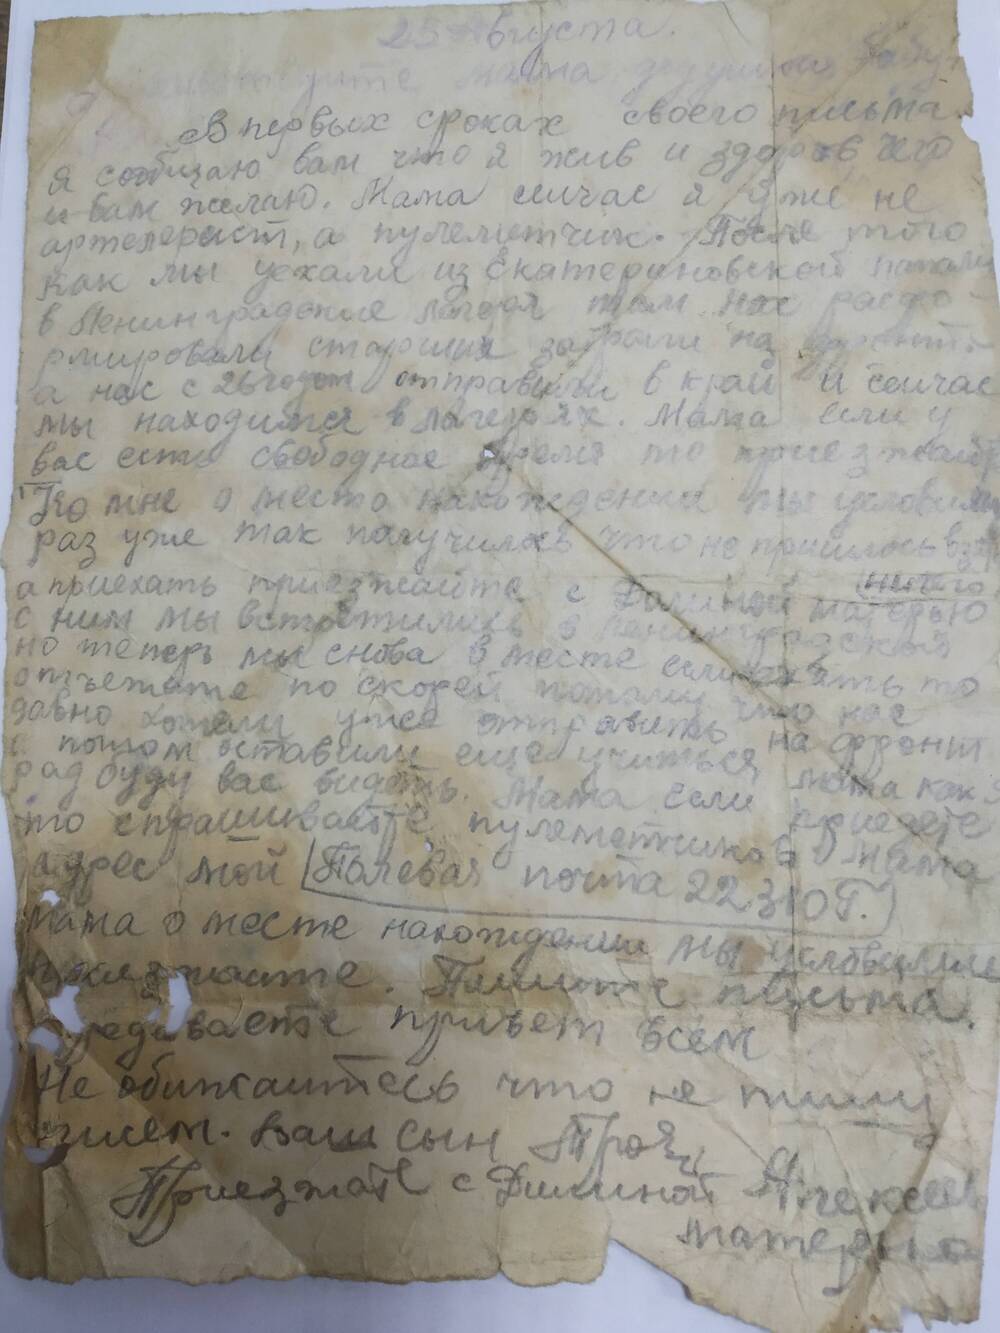 25 Августа.
Здравствуйте мама дедушка бабу
В первых сроках своего письма
я сообщаю вам что я жив и здоров чего
и вам желаю. Мама сичас я уже не
артелерист, а пулеметчик. После того
как мы уехали из Екатериновской попали
в Ленинградские лагеря там нас расфо-
рмировали старших забрали на фронт
а нас с 26 годом отправили в край и сичас
мы находимся в лагерях. Мама если у
вас есть свободное время то приезжайте
Ко мне о место нахождении мы условили
раз уже так получилось что не пришлось
ничего
а приехать приезжайте с матерью
с ним мы встретились в Ленинградской
но теперь мы снова в месте если ехать то
отъежате по скорей потому что нас
давно хотели уже отправить на фронт
а потом оставили еще учиться мама как я
рад буду вас видеть. Мама если приедете
то спрашивайте пулеметчиков Мама
адрес мой Полевая почта 22310 Г.
Мама о месте нахождении мы условилис
приезжайте. Пишите письма.
Передавайте привет всем
Не обижайтесь что не пишу
писем. Ваш сын
Приезжате с Алексей
матерью